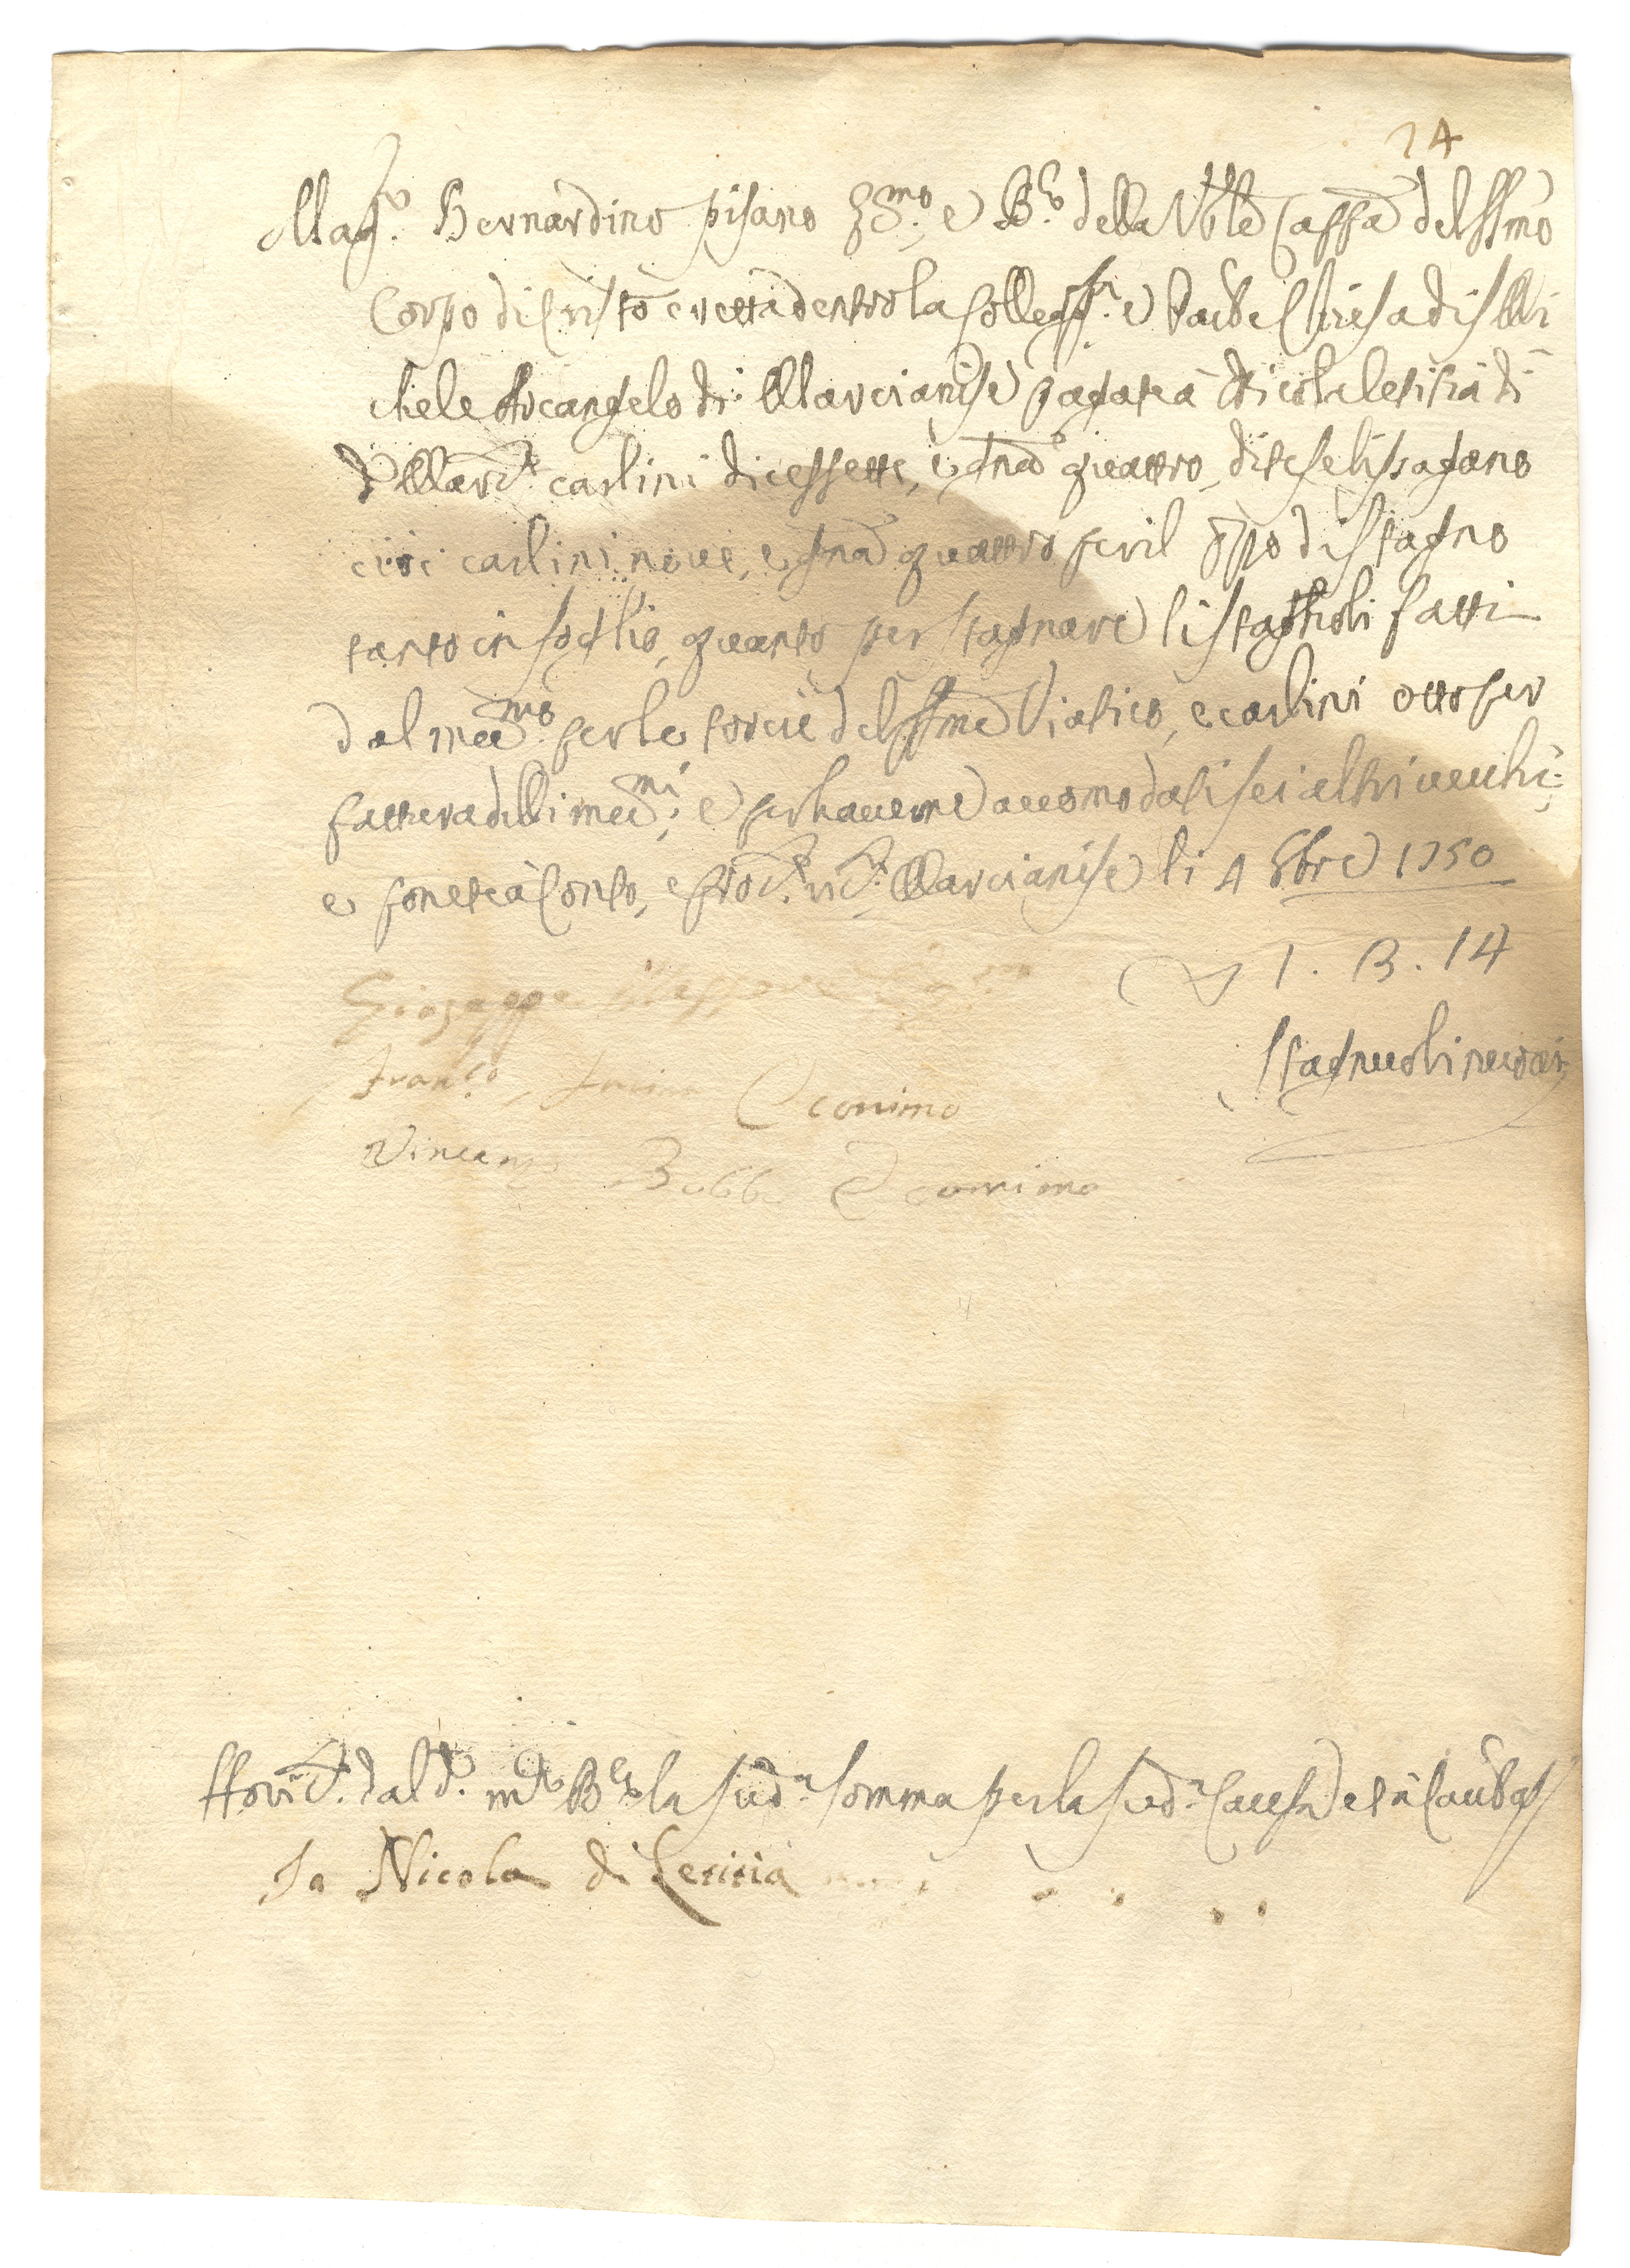 24
Mag.co Bernardino Pisano Ecmo, e B.ro della Ven.le Cappa del SSmo
Corpo di Cristo eretta dentro la Colleg.ta e Chiesa di S. Mi
chele Arcangelo di Marcianise pagate à Nicola Letitia di
di Marc.e carlini dicessette, e gna quattro, dite se li pagano
cioè carlini nove, e gna quattro per il prezzo di stagno
tanto in foglio, quanto per stagnare li stagnoli fatti
dal medmo per le torcie del SSmo Viatico, e carlini otto per
fattura delli medmi; e per haverne accomodati sei altri vecchi;
e ponete à Conto, e Marcianise li 4 8bre 1750
1. 3. 14
stagnuoli
Giuseppe
Franco Economo
Vincenzo Economo
Ho ric.to dal d.o m.co B.ro la sud.a somma per la sud.a Causa
Io Nicola di Letitia